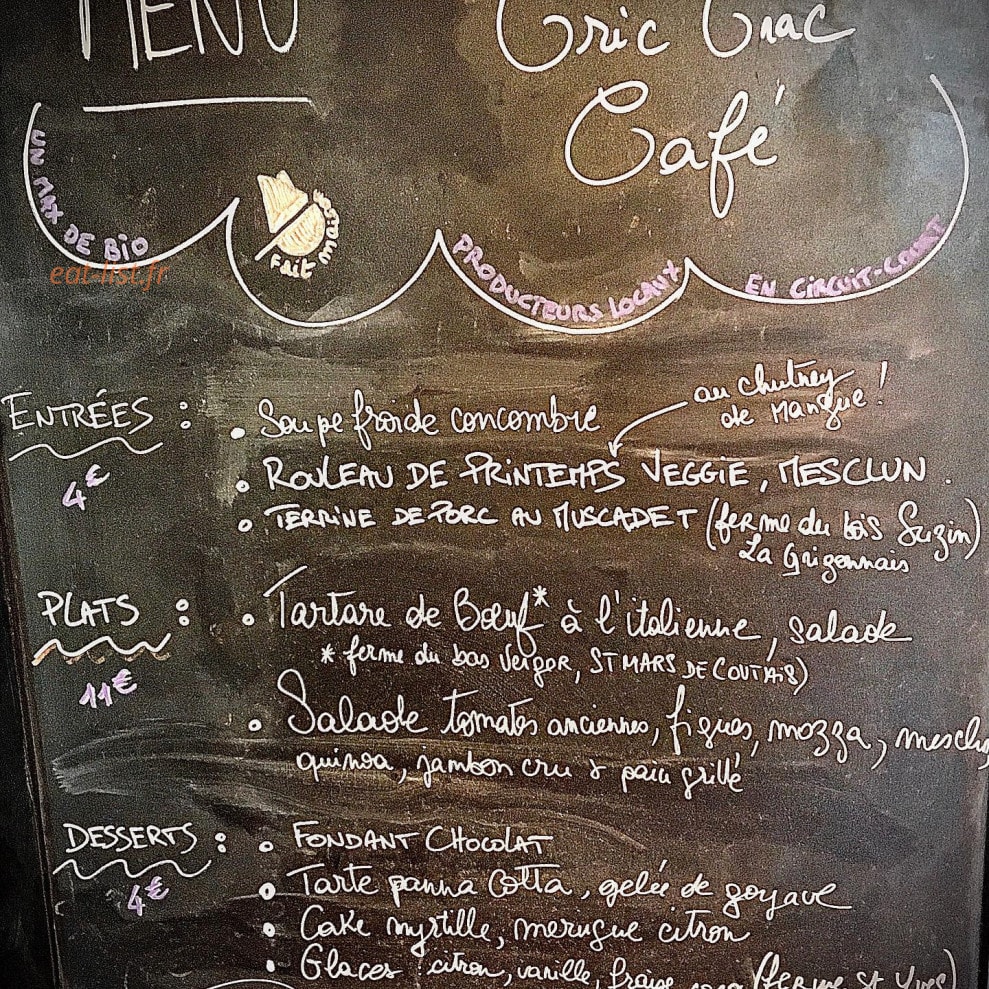 MENU
Cric Crac
Café
UN MAX DE BIO
Fait maison
PRODUCTEURS LOCAUX
EN CIRCUIT-COURT
eat-list.fr
ENTRÉES :
4€
• Soupe froide concombre
au chutney
de mangue !
• ROULEAU DE PRINTEMPS VEGGIE, MESCLUN.
• TERRINE DE PORC AU MUSCADET (ferme du bois Suzin)
La Grigonnais
PLATS :
11€
• Tartare de Bœuf* à l'italienne, salade
* ferme du bas Verger, ST MARS DE COUTAIS)
• Salade tomates anciennes, figues, mozza, mesclu
quinoa, jambon cru & pain grillé
DESSERTS :
4€
• FONDANT CHOCOLAT
• Tarte panna cotta, gelée de goyave
• Cake myrtille, meringue citron
• Glaces : citron, vanille, fraise (ferme St Yves)